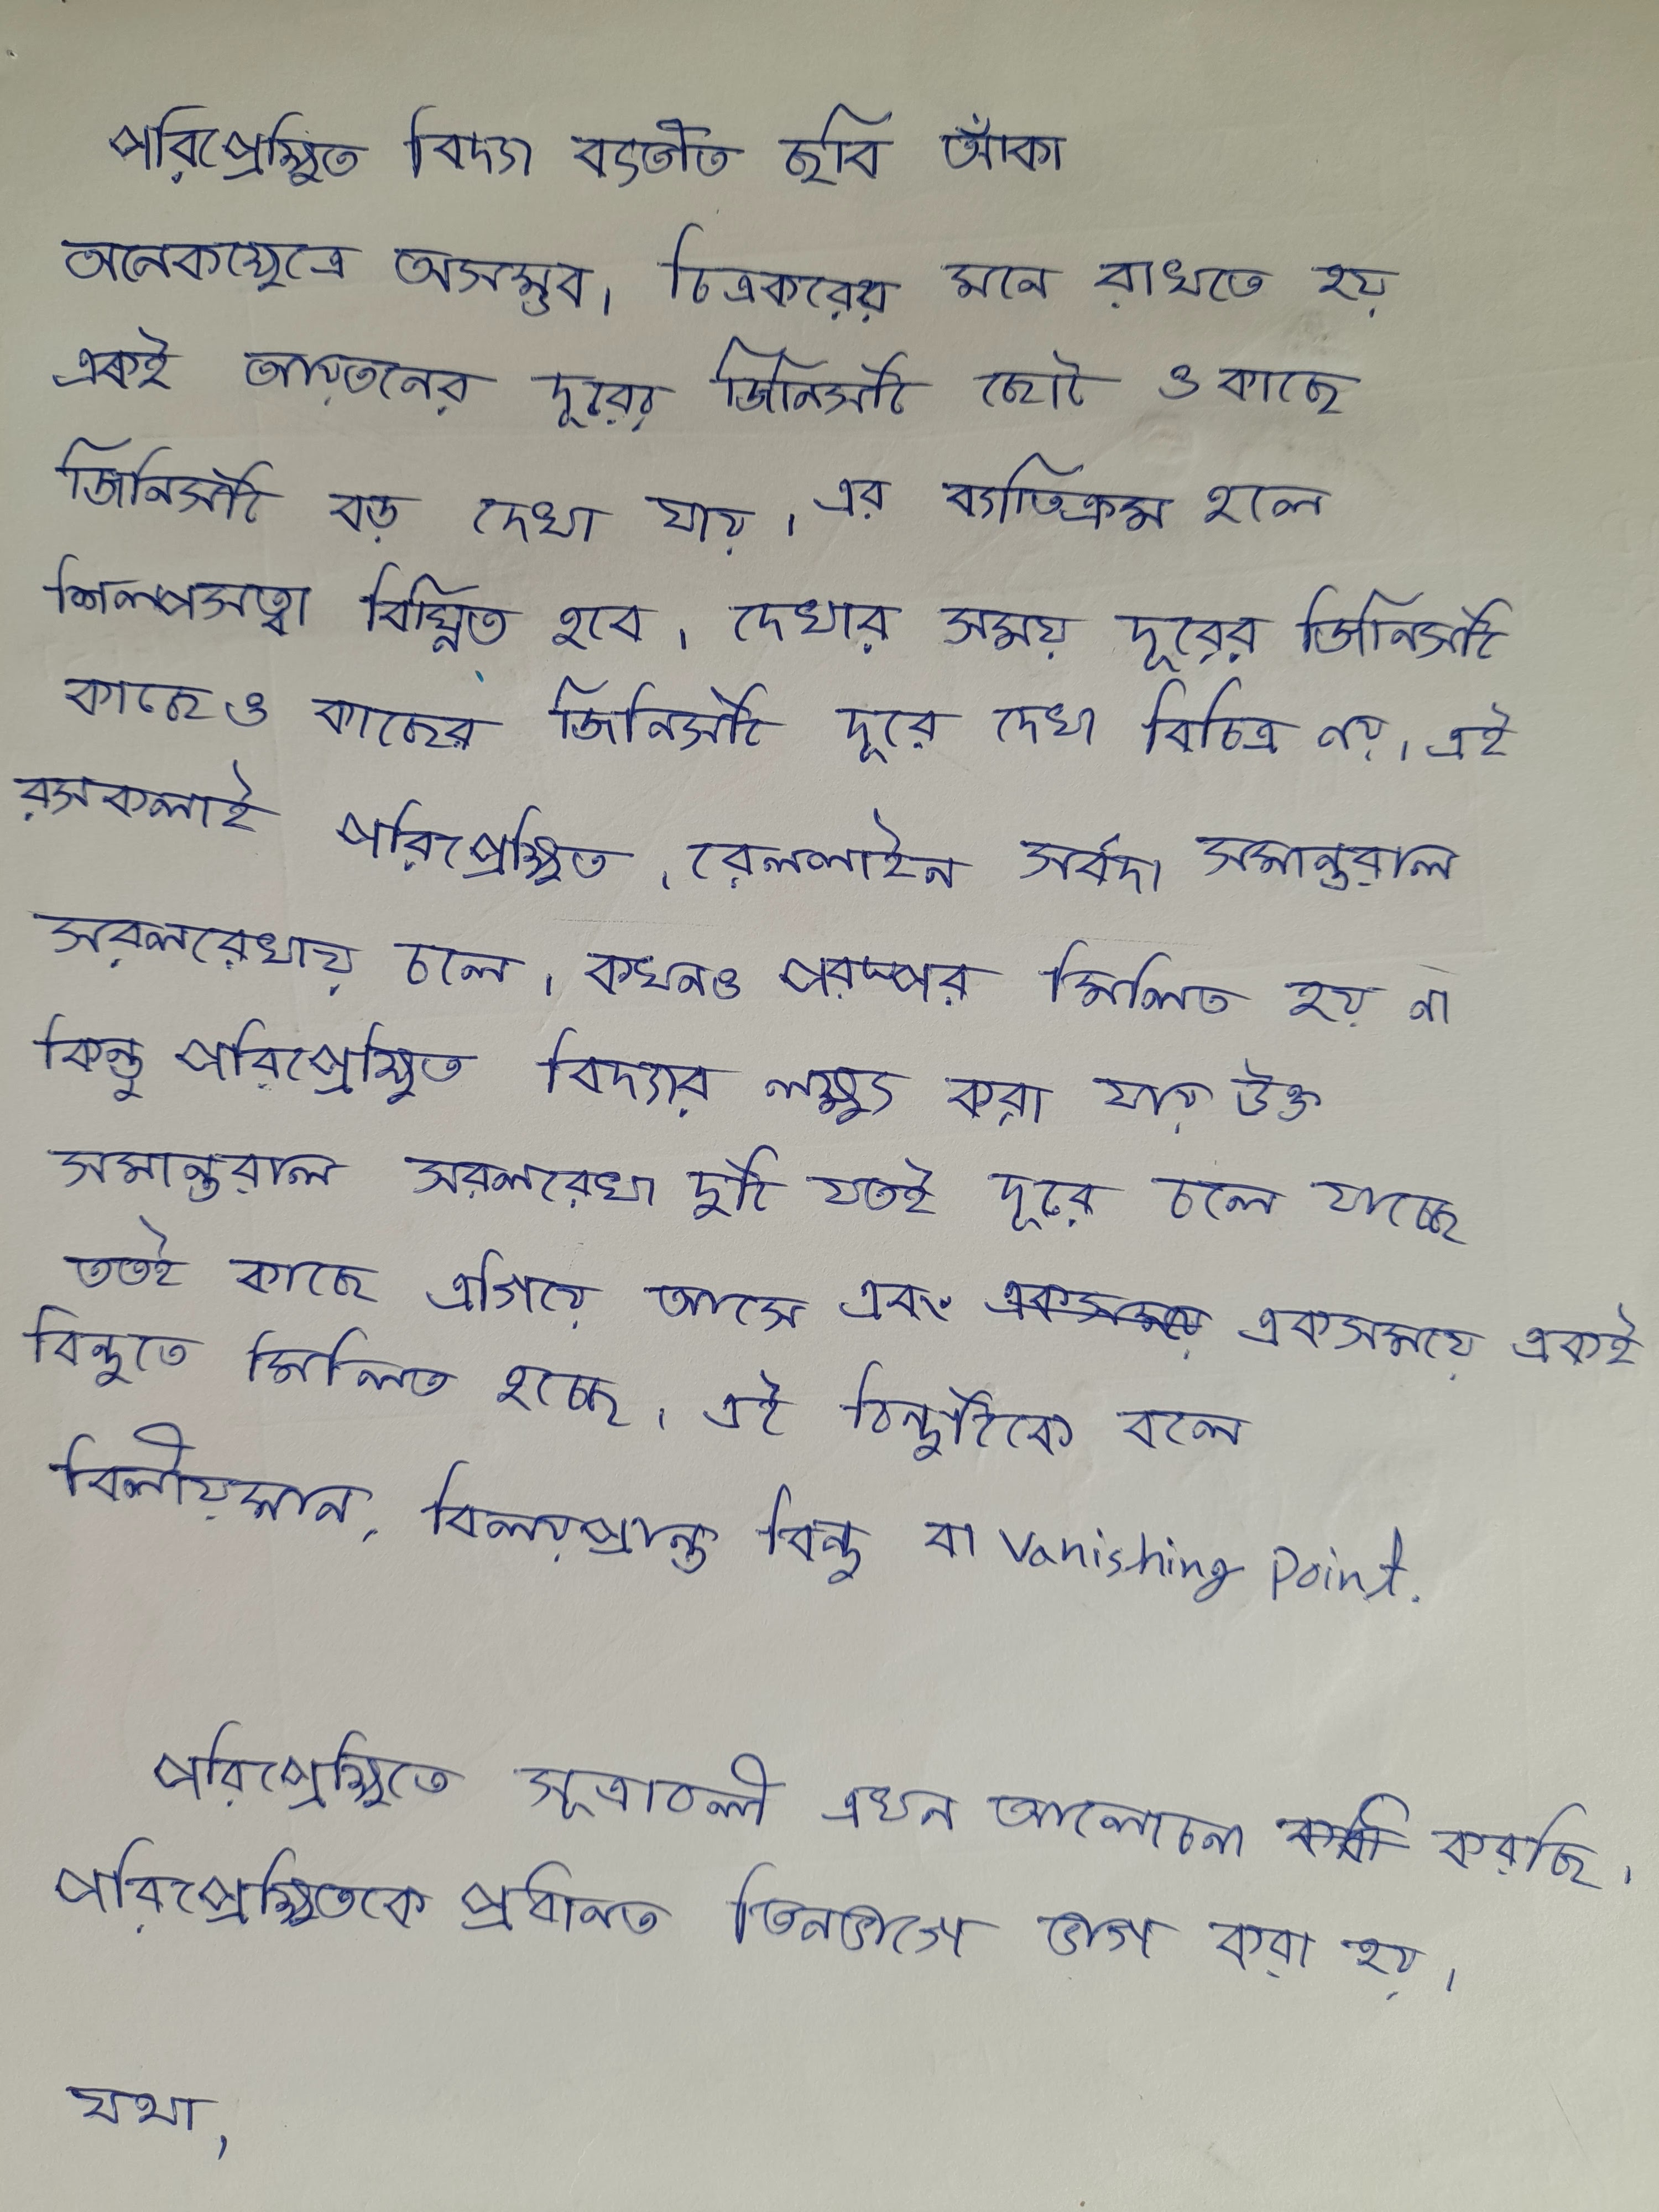 পরিপ্রেক্ষিত বিদ্যা ব্যতীত ছবি আঁকা
অনেকক্ষেত্রে অসম্ভব। চিত্রকরের মনে রাখতে হয়
একই আয়তনের দূরের জিনিসটি ছোট ও কাছে
জিনিসটি বড় দেখা যায়। এর ব্যতিক্রম হলে
শিল্পসত্বা বিঘ্নিত হবে। দেখার সময় দূরের জিনিসটি
কাছে ও কাছের জিনিসটি দূরে দেখা বিচিত্র নয়। এই
রসকলাই পরিপ্রেক্ষিত। রেললাইন সর্বদা সমান্তরাল
সরলরেখায় চলে। কখনও পরস্পর মিলিত হয় না
কিন্তু পরিপ্রেক্ষিত বিদ্যার লক্ষ্য করা যায় উক্ত
সমান্তরাল সরলরেখা দুটি যতই দূরে চলে যাচ্ছে
ততই কাছে এগিয়ে আসে এবং একসময়ে একই
বিন্দুতে মিলিত হচ্ছে। এই বিন্দুটিকে বলে
বিলীয়মান, বিলয়প্রান্ত বিন্দু বা Vanishing Point.
পরিপ্রেক্ষিতে সূত্রাবলী এখন আলোচনা করছি।
পরিপ্রেক্ষিতকে প্রধানত তিনভাগে ভাগ করা হয়।
যথা,